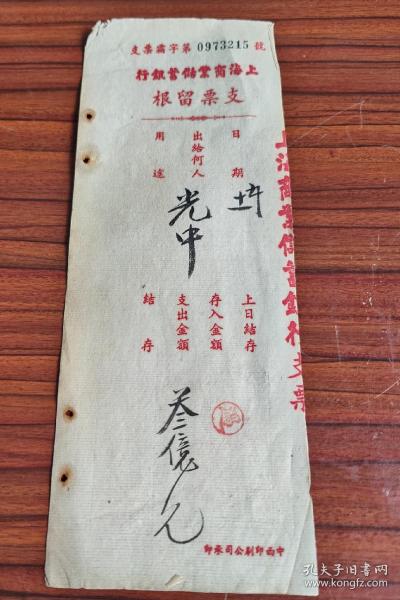 支票藹字第 0973215 號
上海商業儲蓄銀行
支票留根
日期
出給何人
光中
用途
上日結存
存入金額
支出金額
叁億元
結存
中西印刷公司承印
上海商業儲蓄銀行支票
孔夫子旧书网
www.kongfz.com